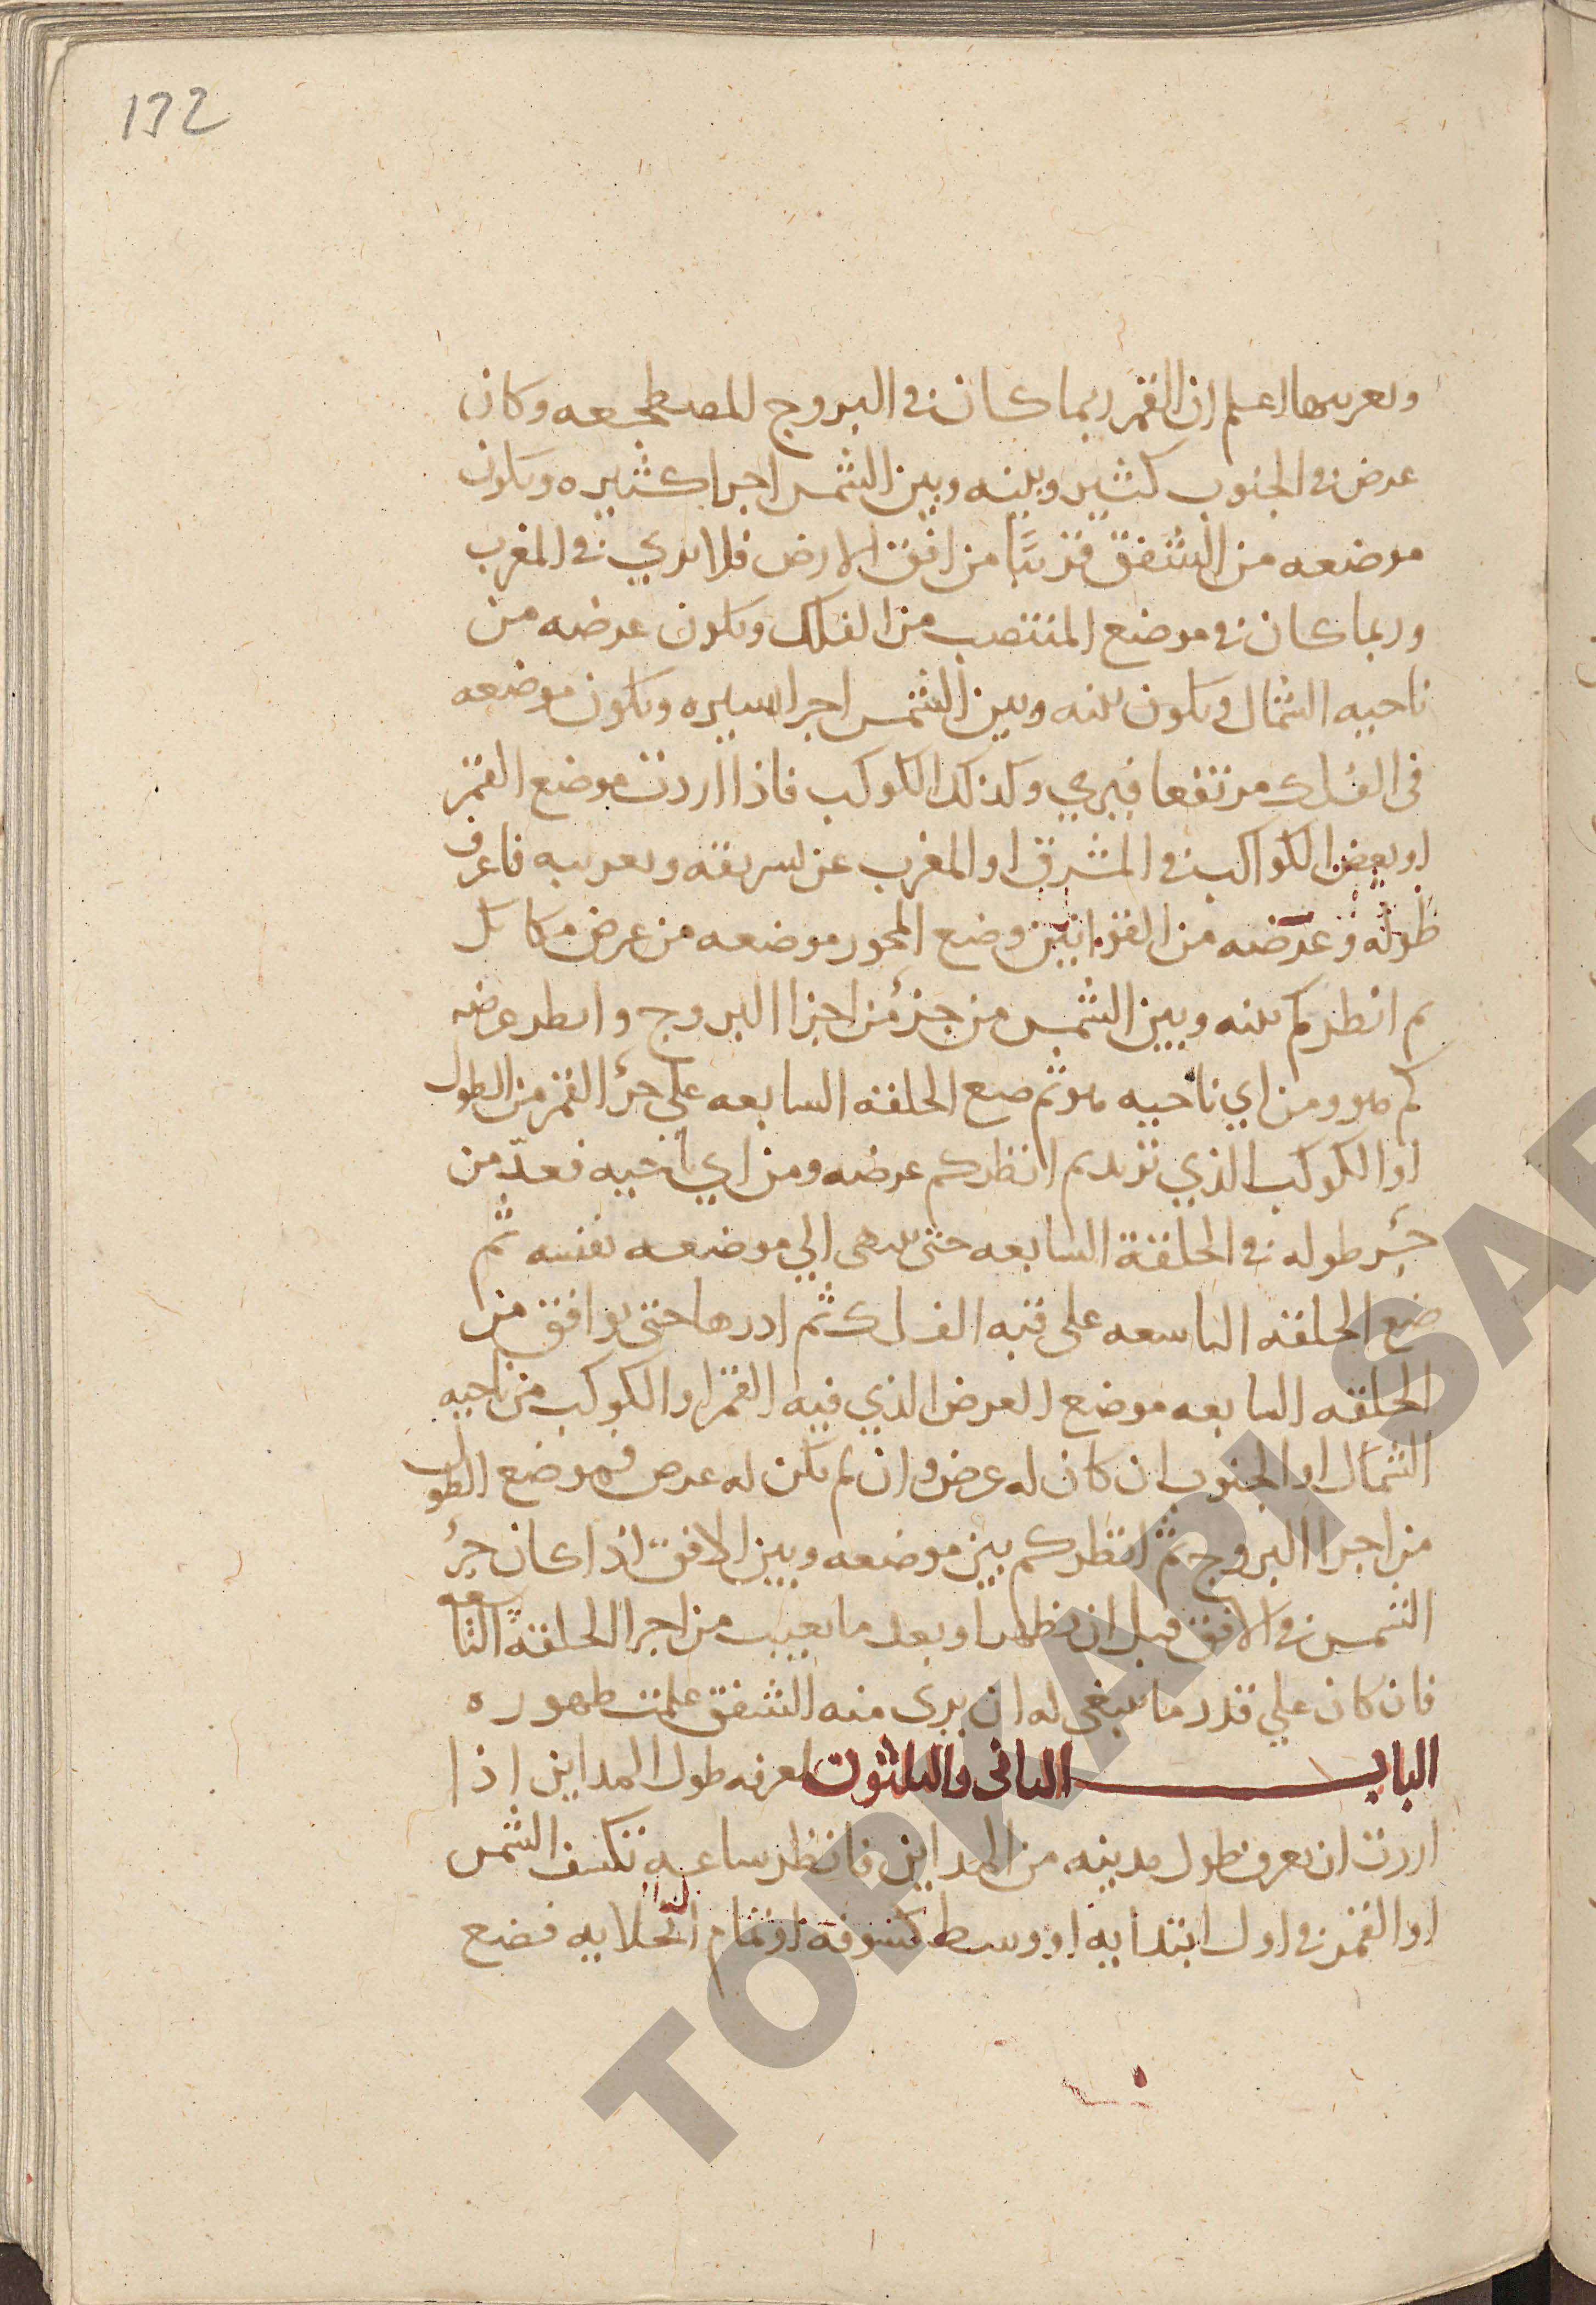 132
وتعريبها اعلم ان القمر ربما كان في البروج المصطجعه وكان
عرض في الجنوب كثير وبينه وبين الشمس اجرا كثيره ويكون
موضعه من الشفق قريبًا من افق الارض فلا يري في المغرب
وربما كان في موضع المنتصب من الفلك ويكون عرضه من
ناحيه الشمال ويكون بينه وبين الشمس اجرا يسيره ويكون موضعه
في الفلك مرتفعا فيري وكذلك الكوكب فاذا اردت موضع القمر
او بعض الكواكب في المشرق او المغرب عن تشريقه وتعريبه فاعرف
طوله وعرضه من القوانين وضع المحور موضعه من عرض مكانك
ثم انظر كم بينه وبين الشمس من جزء من اجزا البروج وانظر عرضه
كم هو ومن اي ناحيه هو ثم ضع الحلقه السابعه علي جزء القمر من الطول
او الكوكب الذي تريد ثم انظر كم عرضه ومن اي ناحيه فعدّ من
جزء طوله في الحلقة السابعه حتى ينتهى الي موضعه نفسه ثم
ضع الحلقه التاسعه على قبه الفلك ثم ادرها حتى يوافق من
الحلقه السابعه موضع العرض الذي فيه القمر او الكوكب من ناحيه
الشمال او الجنوب ان كان له عرض وان لم يكن له عرض فموضع الطول
من اجزا البروج ثم انظر كم بين موضعه وبين الافق اذا كان جزء
الشمس في الافق قبل ان تظهر او بعد ما تغيب من اجزا الحلقة التاسعه
فان كان علي قدر ما ينبغي له ان يرى منه الشفق علمت ظهوره
الباب الثاني والثلثون لمعرفه طول المداين اذا
اردت ان تعرف طول مدينه من المداين فانظر ساعه تنكسف الشمس
او القمر في اول ابتدايه او وسط كسوفه او تمام انجلايه فضع
TOPKAPI SAR